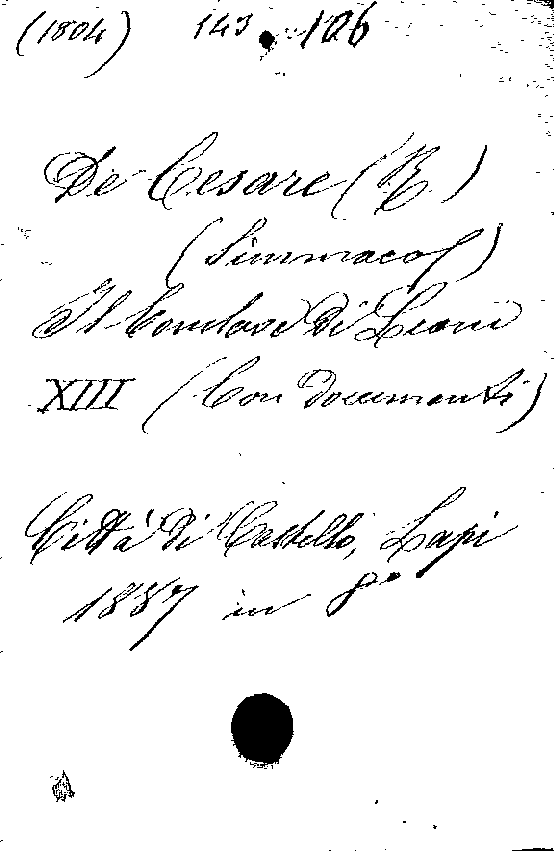 (1804) 143 106
De Cesare (R.)
(Simmaco)
Il Conclave di Leone
XIII (Con documenti)
Città di Castello, Lapi
1887 in 8º